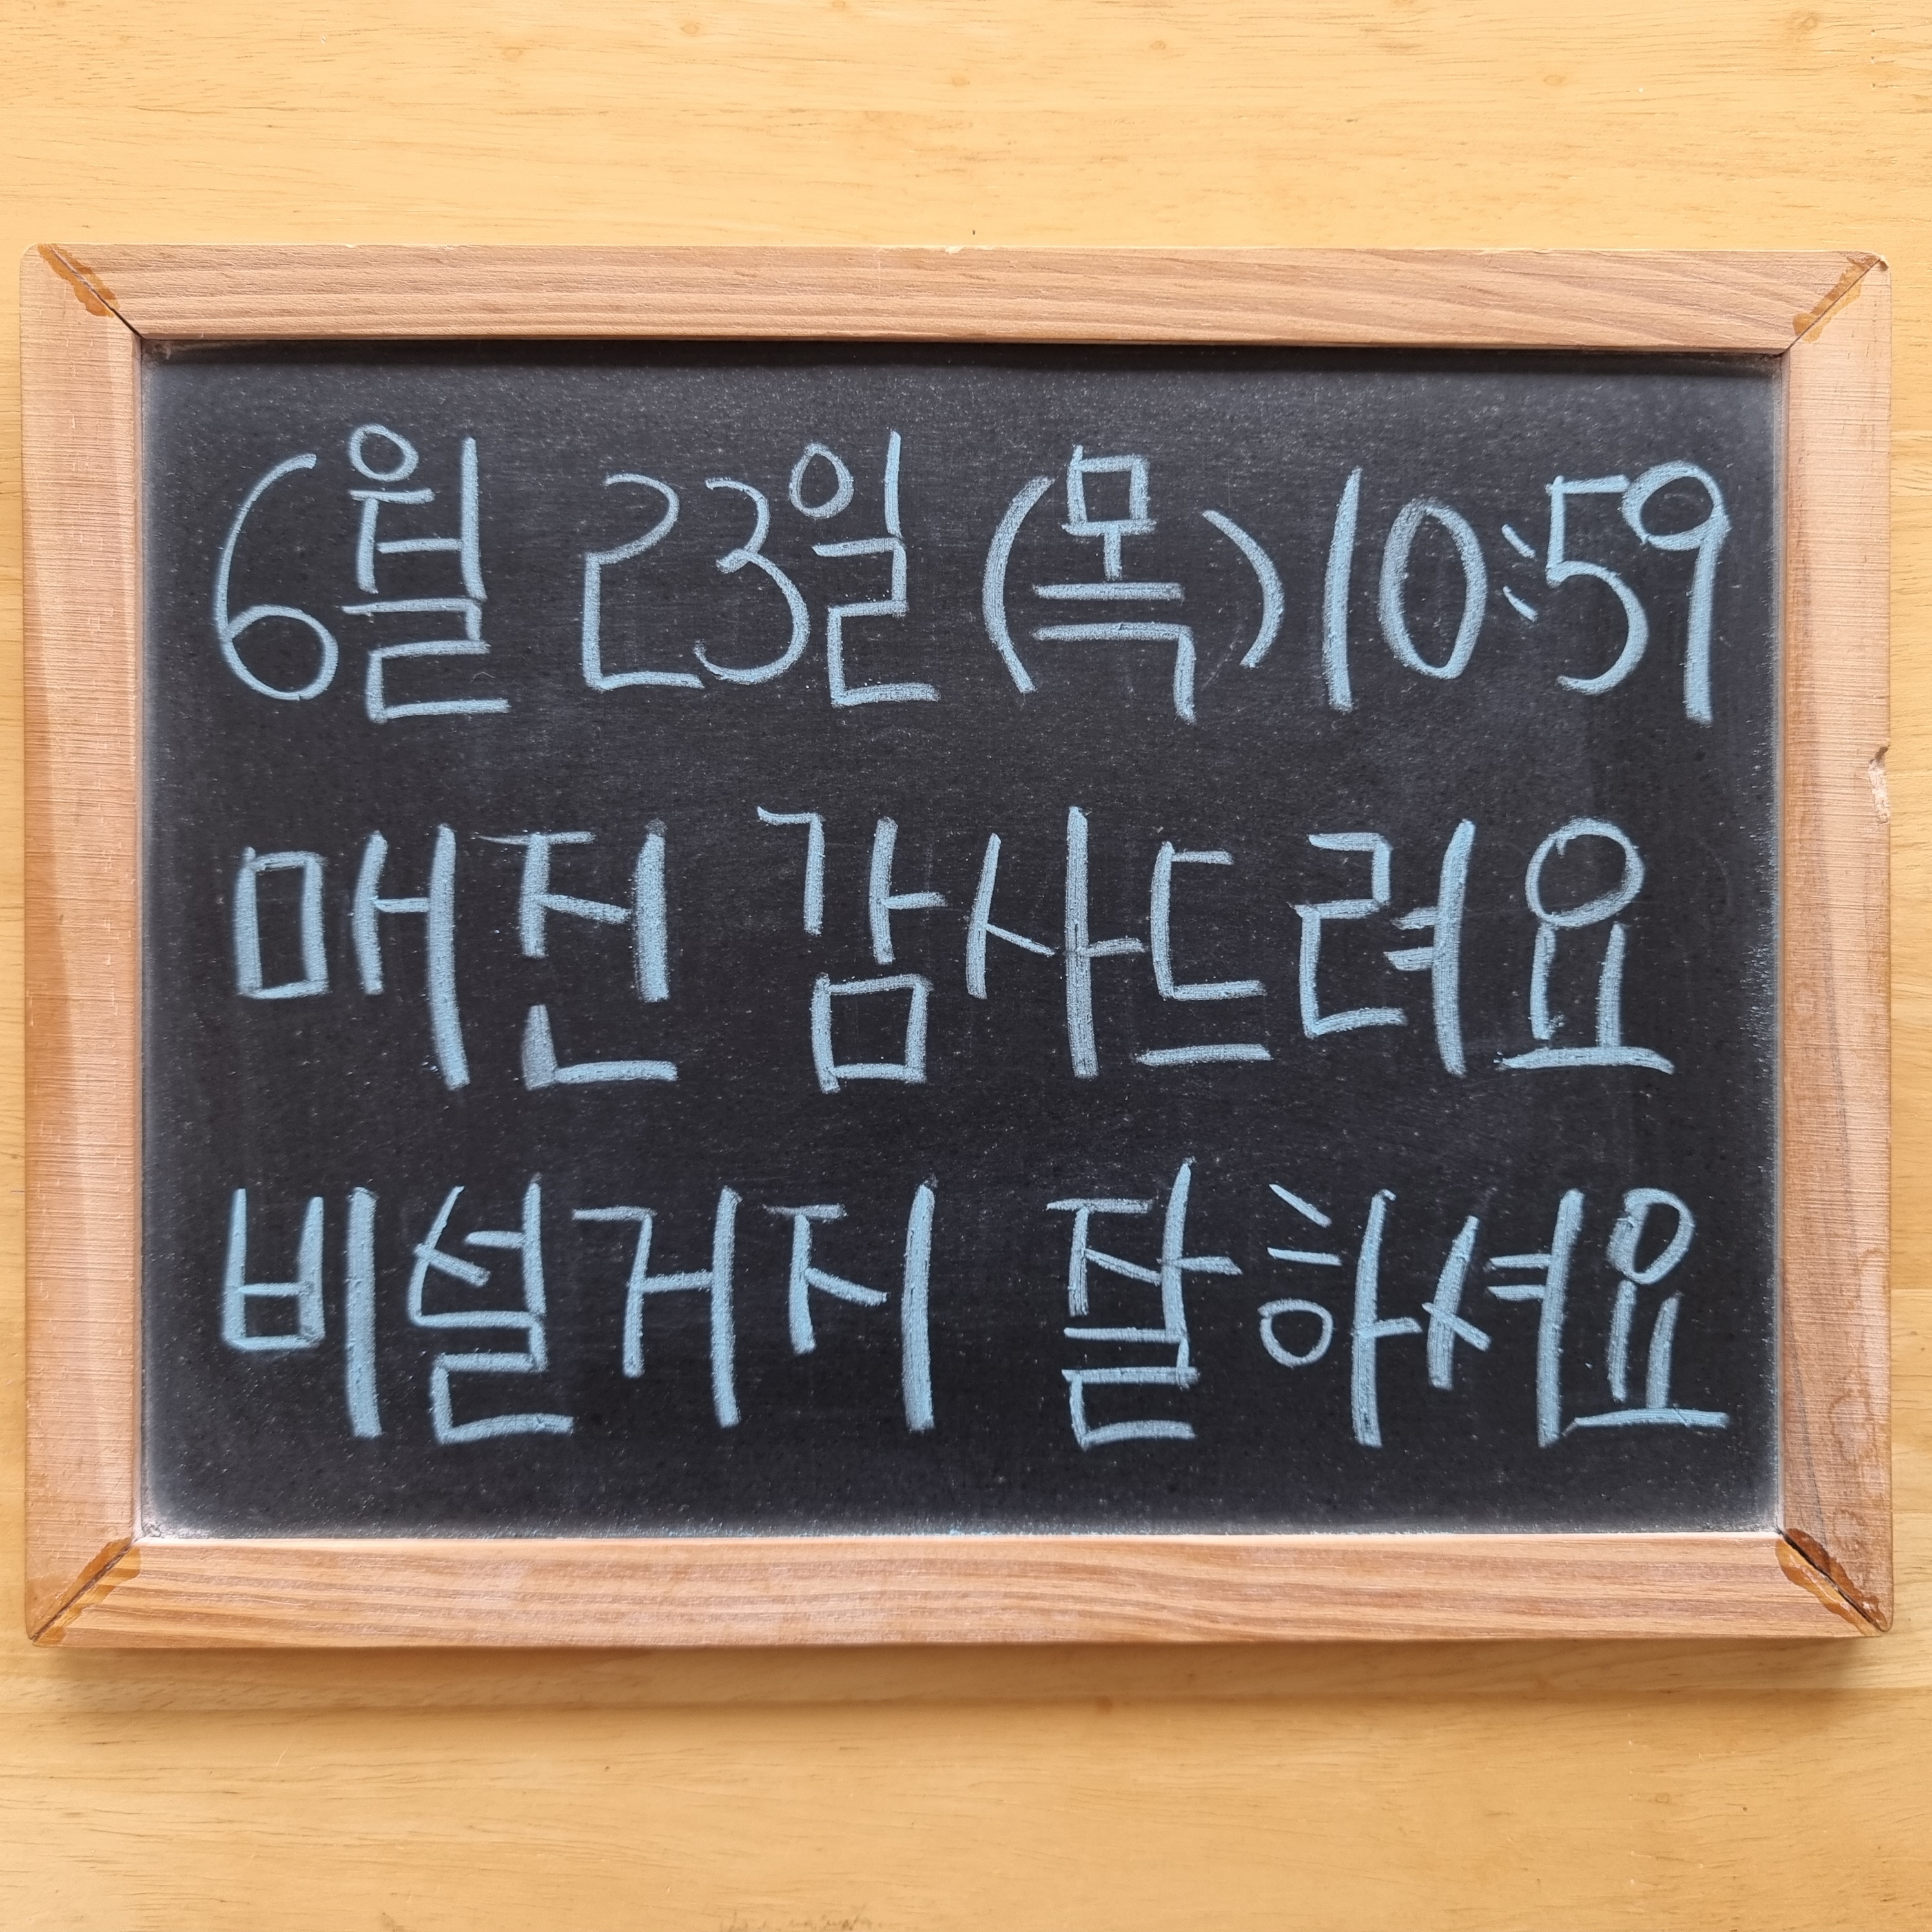 6월 23일(목)10:59
매진 감사드려요
비설거지 잘하셔요